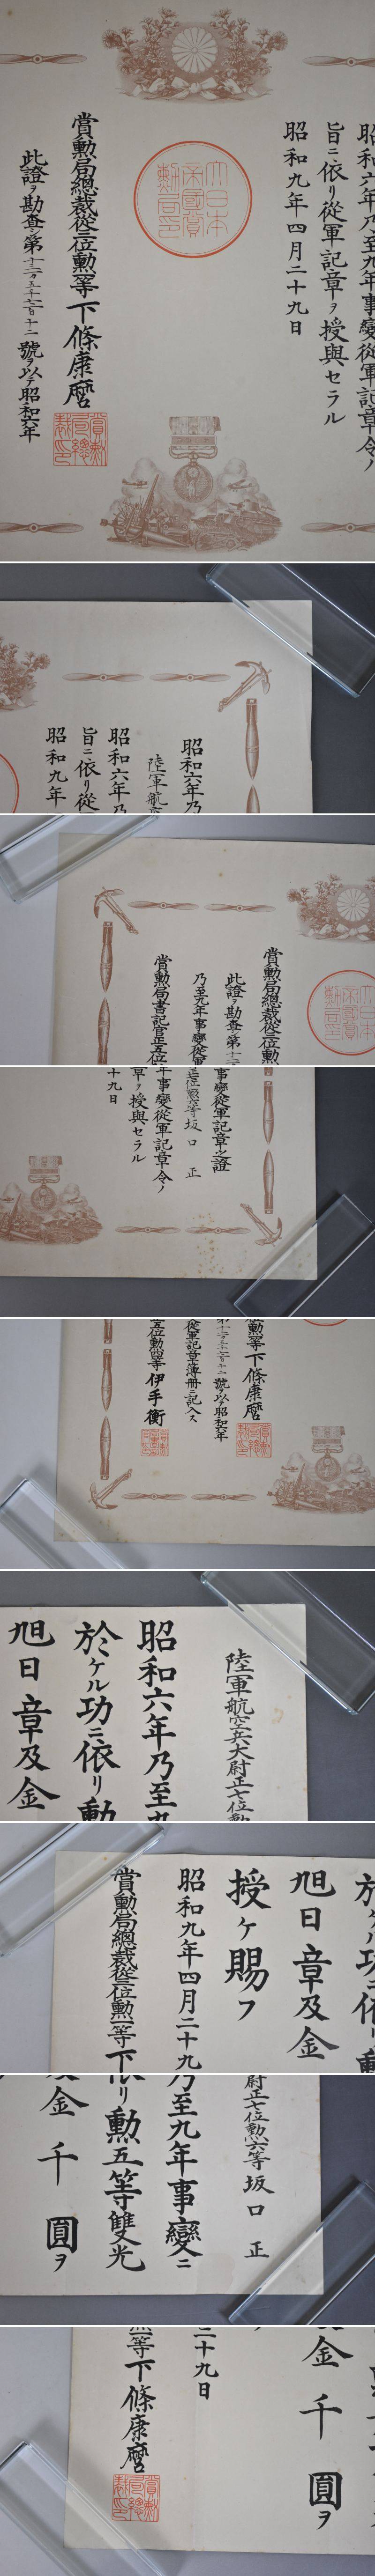 昭和六年乃至九年事變從軍記章令ノ
旨ニ依リ從軍記章ヲ授與セラル
昭和九年四月二十九日
大日本
帝國賞
勲局印
賞勲局總裁從三位勲一等下條康麿
賞勲
局總
裁印
此證ヲ勘査シ第十三万三千七百十二號ヲ以テ昭和六年
昭和六年乃
陸軍航空
昭和六年乃
旨ニ依リ從
昭和九年
賞勲局總裁從三位勲
此證ヲ勘査シ第十三
乃至九年事變從軍
賞勲局書記官正五位
事變從軍記章之證
正七位勲六等坂口正
年事變從軍記章令ノ
章ヲ授與セラル
十九日
位勲一等下條康麿
第十三万三千七百十二號ヲ以テ昭和六年
從軍記章簿册ニ記入ス
正五位勲四等伊手衡
陸軍航空兵大尉正七位勲
昭和六年乃至九
於ケル功ニ依リ勲
旭日章及金
於ケル功ニ依リ勲
旭日章及金
授ケ賜フ
昭和九年四月二十九
賞勲局總裁從三位勲一等下
尉正七位勲六等坂口正
乃至九年事變ニ
依リ勲五等雙光
及金千圓ヲ
金千圓ヲ
二十九日
勲一等下條康麿
賞勲
局總
裁印